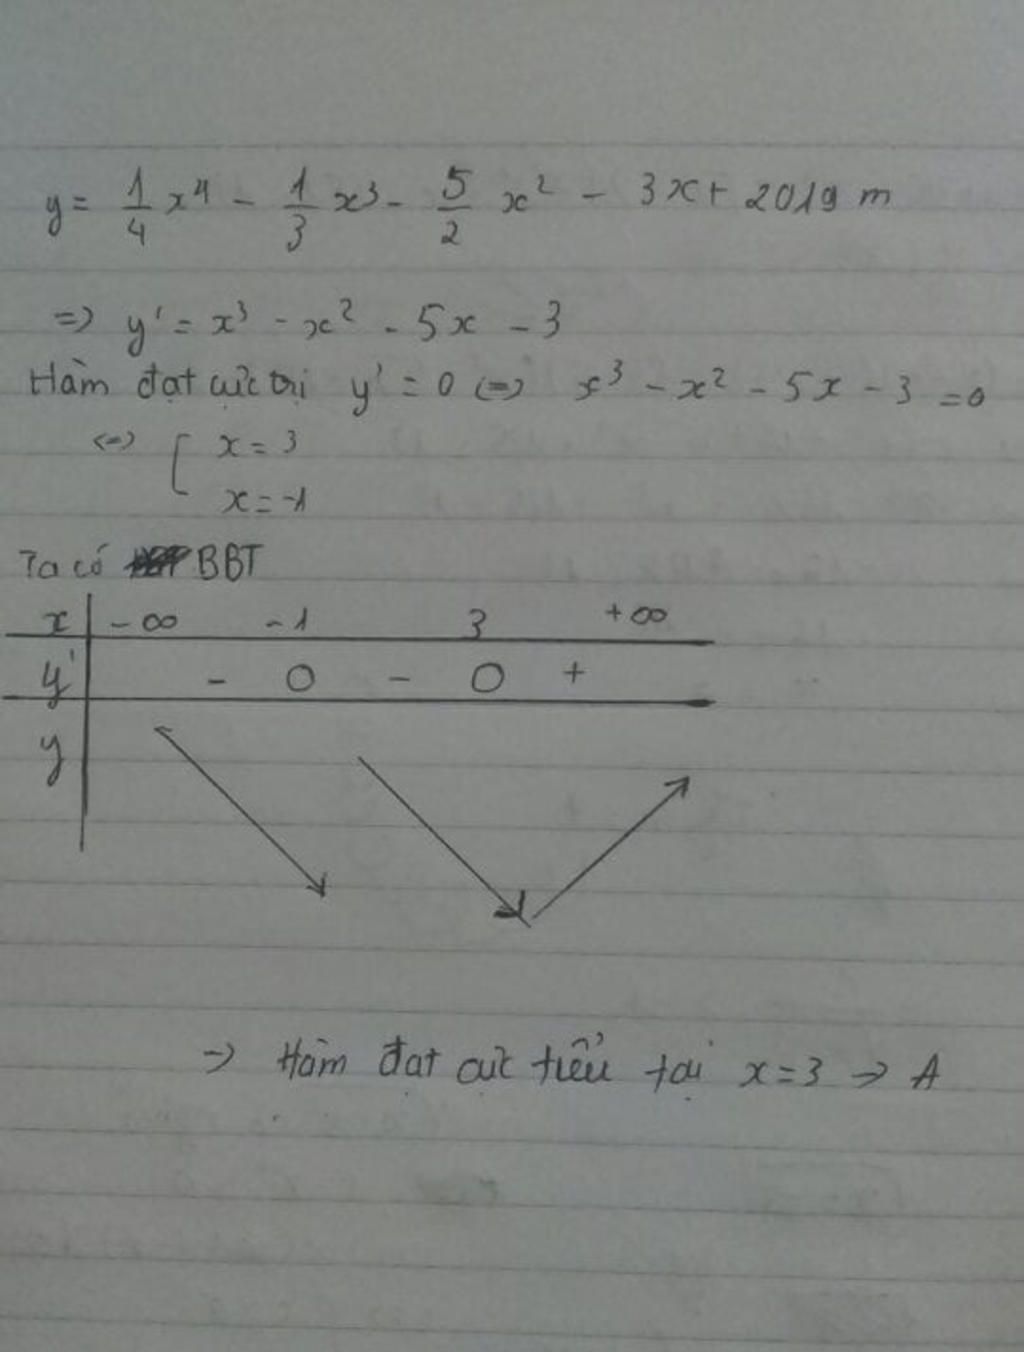 y = 1/4 x⁴ - 1/3 x³ - 5/2 x² - 3x + 2019 m
=> y' = x³ - x² - 5x - 3
Hàm đạt cực trị y' = 0 <=> x³ - x² - 5x - 3 = 0
<=> [ x = 3
x = -1
Ta có BBT
x -∞ -1 3 +∞
y' - 0 - 0 +
y
-> Hàm đạt cực tiểu tại x = 3 -> A